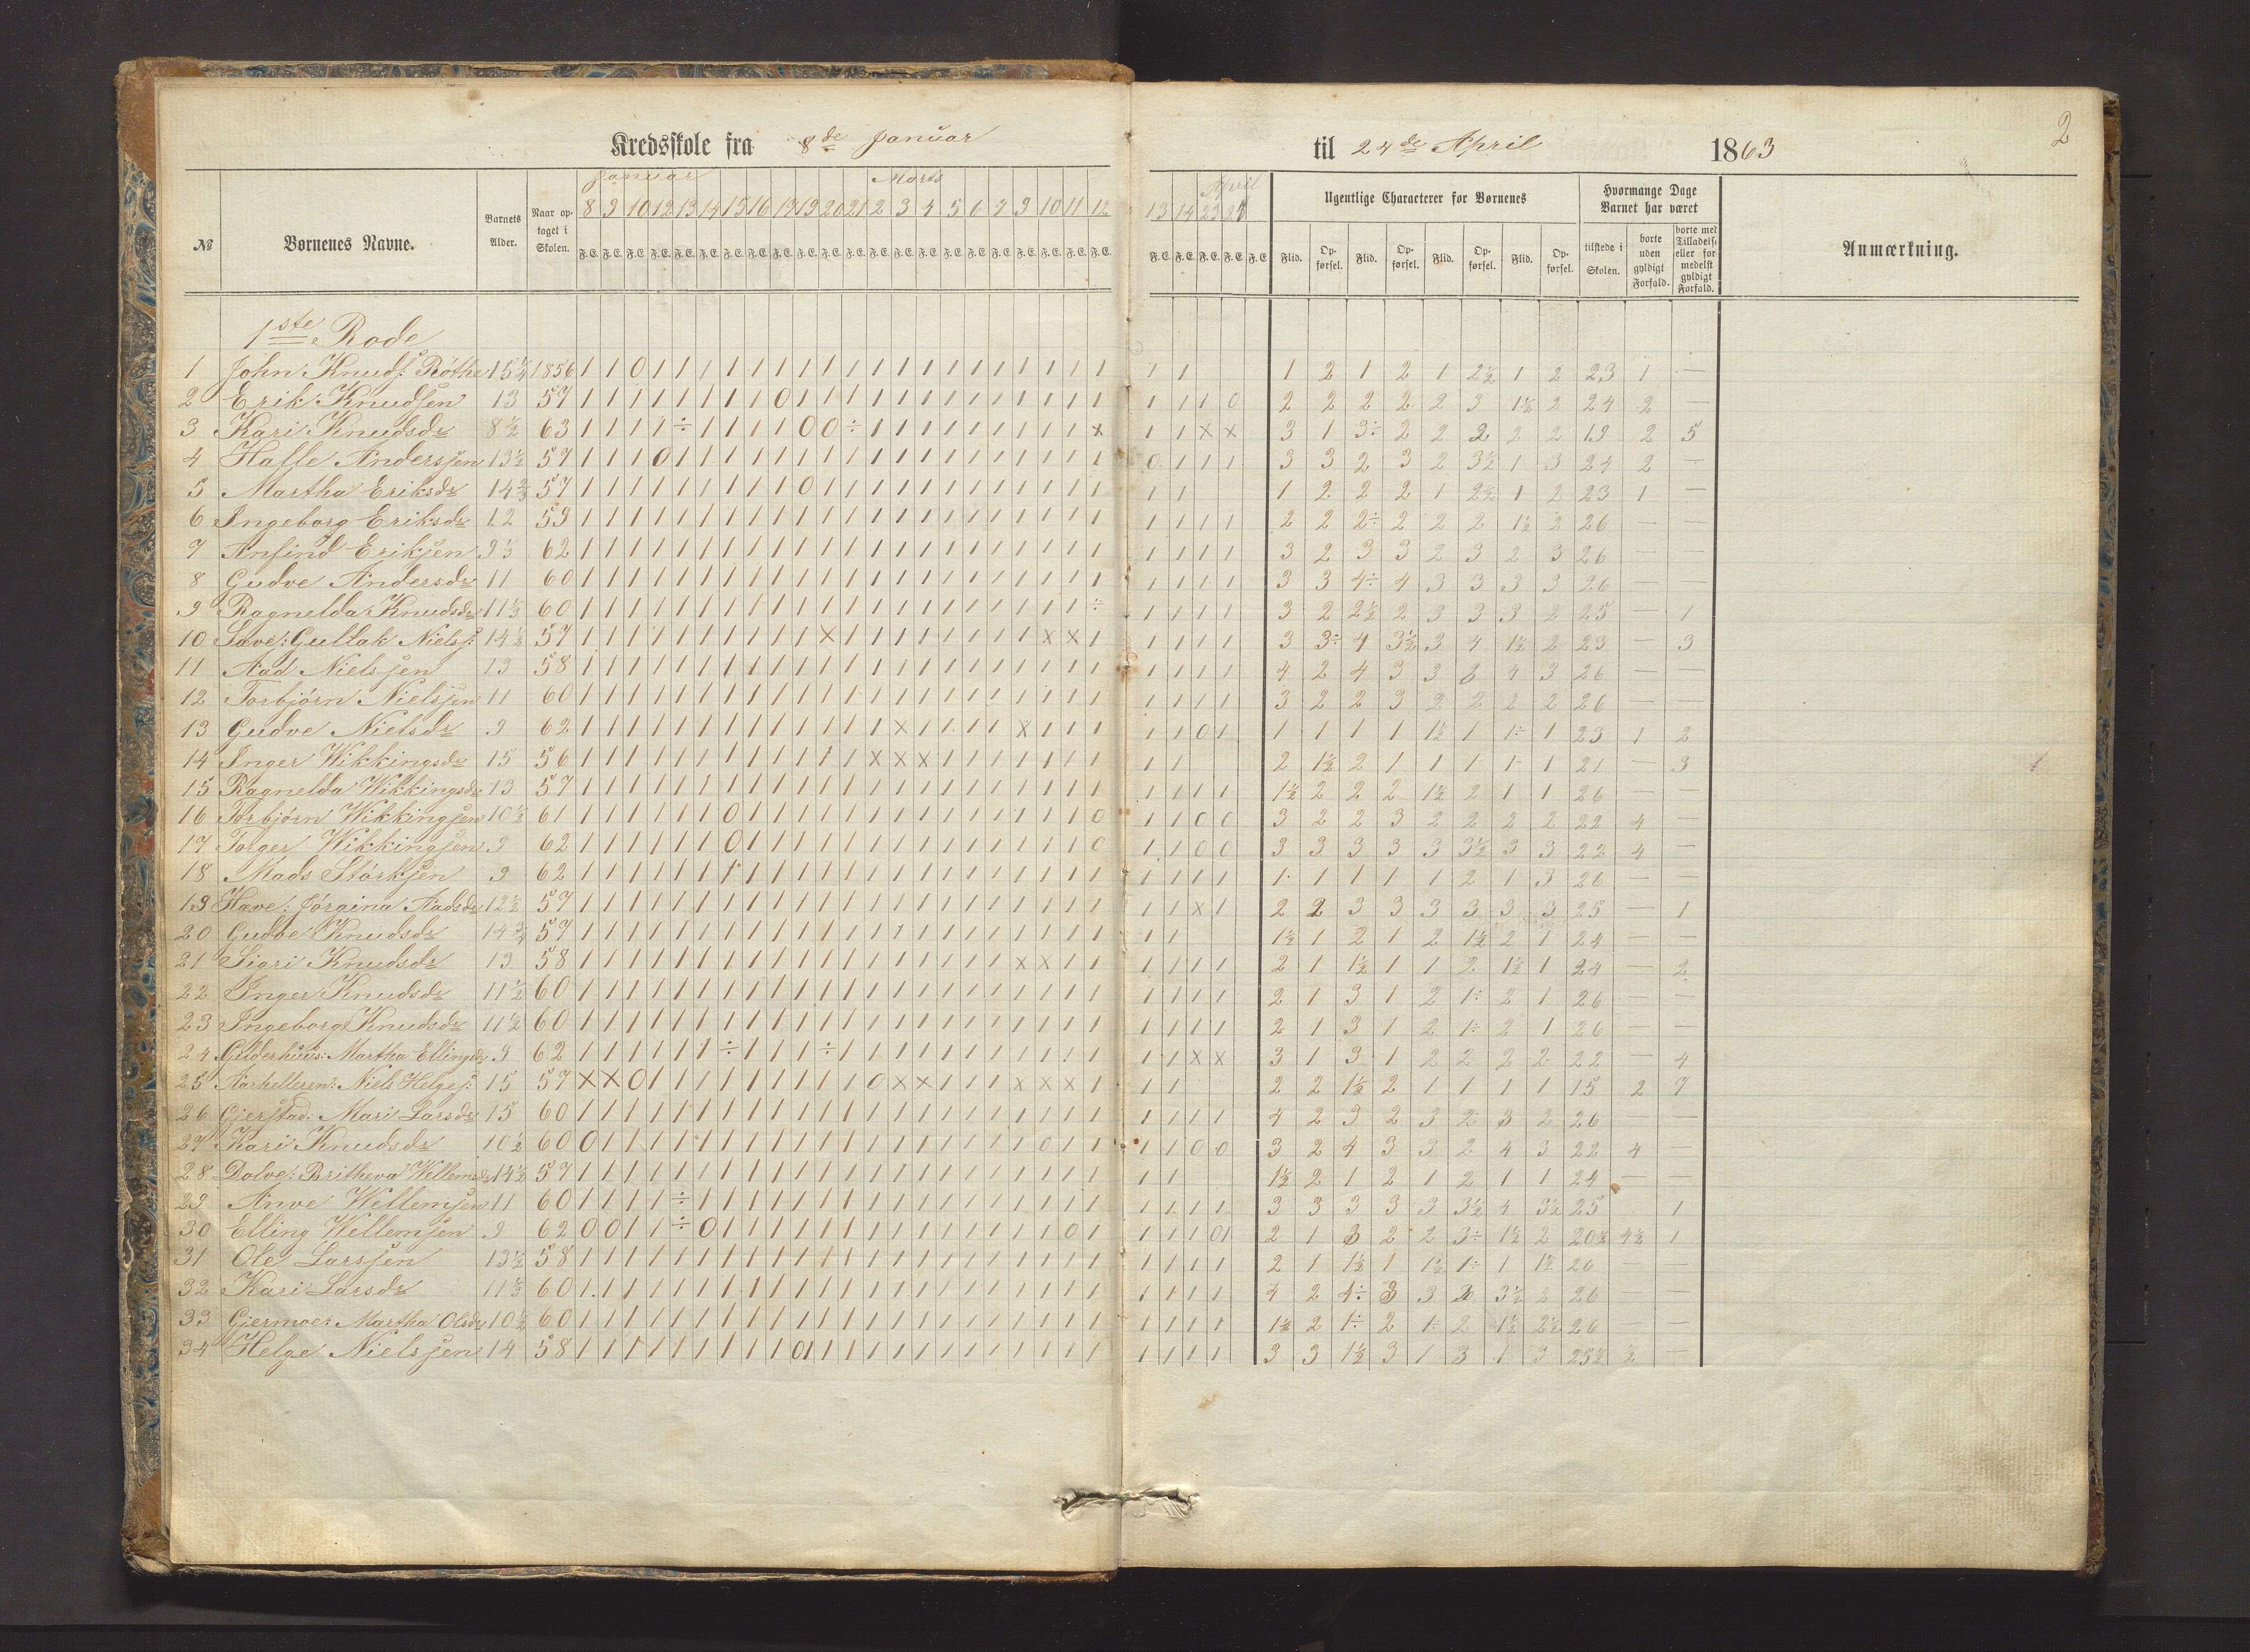 Kredsskole fra 8de Januar til 24de April 1863 2
№ Børnenes Navne. Barnets Alder. Naar optaget i Skolen. Januar 8 9 10 12 13 14 15 16 17 19 20 21 Marts 2 3 4 5 6 7 9 10 11 12 13 14 April 23 24 Ugentlige Characterer for Børnenes Hvormange Dage Barnet har været Anmærkning.
F. E. F. E. F. E. F. E. F. E. F. E. F. E. F. E. F. E. F. E. F. E. F. E. F. E. F. E. F. E. F. E. F. E. F. E. F. E. F. E. F. E. F. E. F. E. F. E. F. E. F. E. F. E. Flid. Opførsel. Flid. Opførsel. Flid. Opførsel. Flid. Opførsel. tilstede i Skolen. borte uden gyldigt Forfald. borte med Tilladelse eller formedelst gyldigt Forfald.
1ste Rode
1 John Knuds: Röthe 15 1/4 1856 1 1 0 1 1 1 1 1 1 1 1 1 1 1 1 1 1 1 1 1 1 1 1 1 1 2 1 2 1 2½ 1 2 23 1 —
2 Erik Knudsen 13 57 1 1 1 1 1 1 1 1 0 1 1 1 1 1 1 1 1 1 1 1 1 1 1 1 1 0 2 2 2 2 2 3 1½ 2 24 2 —
3 Kari Knudsdr 8½ 63 1 1 1 1 ÷ 1 1 1 1 0 0 ÷ 1 1 1 1 1 1 1 1 1 x 1 1 x x 3 1 3÷ 2 2 2 2 2 19 2 5
4 Halle Anderssen 13½ 57 1 1 1 0 1 1 1 1 1 1 1 1 1 1 1 1 1 1 1 1 1 1 0 1 1 1 3 3 2 3 2 3½ 1 3 24 2 —
5 Martha Eriksdr 14 2/3 57 1 1 1 1 1 1 1 1 1 0 1 1 1 1 1 1 1 1 1 1 1 1 1 1 1 2 2 2 1 2½ 1 2 23 1 —
6 Ingeborg Eriksdr 12 59 1 1 1 1 1 1 1 1 1 1 1 1 1 1 1 1 1 1 1 1 1 1 1 1 1 1 2 2 2÷ 2 2 2 1½ 2 26 — —
7 Anfind Eriksen 9 1/3 62 1 1 1 1 1 1 1 1 1 1 1 1 1 1 1 1 1 1 1 1 1 1 1 1 1 1 3 2 3 3 2 3 2 3 26 — —
8 Gudve Andersdr 11 60 1 1 1 1 1 1 1 1 1 1 1 1 1 1 1 1 1 1 1 1 1 1 1 1 1 1 3 3 4÷ 4 3 3 3 3 26 — —
9 Ragnelda Knudsdr 11 1/3 60 1 1 1 1 1 1 1 1 1 1 1 1 1 1 1 1 1 1 1 1 1 ÷ 1 1 1 1 3 2 2½ 2 3 3 3 2 25 — 1
10 Save: Gullak Niels: 14½ 57 1 1 1 1 1 1 1 1 1 1 x 1 1 1 1 1 1 1 1 x x 1 1 1 1 1 3 3÷ 4 3½ 3 4 1½ 2 23 — 3
11 Aad Nielssen 13 58 1 1 1 1 1 1 1 1 1 1 1 1 1 1 1 1 1 1 1 1 1 1 1 1 1 1 4 2 4 3 3 3 4 3 26 — —
12 Torbjörn Nielssen 11 60 1 1 1 1 1 1 1 1 1 1 1 1 1 1 1 1 1 1 1 1 1 1 1 1 1 1 3 2 2 3 2 2 2 2 26 — —
13 Gudve Nielsdr 9 62 1 1 1 1 1 1 1 1 1 1 1 1 1 x 1 1 1 1 x 1 1 1 1 1 0 1 1 1 1 1 1½ 1 1÷ 1 23 1 2
14 Inger Wikkingsdr 15 56 1 1 1 1 1 1 1 1 1 1 1 1 x x x 1 1 1 1 1 1 1 1 1 2 1½ 2 1 1 1 1 1 21 — 3
15 Ragnelda Wikkingsdr 13 57 1 1 1 1 1 1 1 1 1 1 1 1 1 1 1 1 1 1 1 1 1 1 1 1 1 1 1½ 2 2 2 1½ 2 1 1 26 — —
16 Torbjörn Wikkingsen 10½ 61 1 1 1 1 1 1 0 1 1 1 1 1 1 1 1 1 1 1 1 1 1 0 1 1 0 0 3 2 2 3 2 2 2 2 22 4 —
17 Torger Wikkingsen 9 62 1 1 1 1 1 1 0 1 1 1 1 1 1 1 1 1 1 1 1 1 1 0 1 1 0 0 3 3 3 3 3 3½ 3 3 22 4 —
18 Mads Störksen 9 62 1 1 1 1 1 1 1 1 1 1 1 1 1 1 1 1 1 1 1 1 1 1 1 1 1 1 1 1 1 1 1 2 1 3 26 — —
19 Hæve: Jörgina Aadsdr 12½ 57 1 1 1 1 1 1 1 1 1 1 1 1 1 1 1 1 1 1 1 1 1 1 1 1 x 1 2 2 3 3 3 3 3 3 25 — 1
20 Gudve Knudsdr 14 3/4 57 1 1 1 1 1 1 1 1 1 1 1 1 1 1 1 1 1 1 1 1 1 1 1 1 1½ 1 2 1 2 1½ 2 1 24 — —
21 Sigri Knudsdr 13 58 1 1 1 1 1 1 1 1 1 1 1 1 1 1 1 1 1 1 x x 1 1 1 1 1 1 2 1 1½ 1 1 2 1½ 1 24 — 2
22 Inger Knudsdr 11½ 60 1 1 1 1 1 1 1 1 1 1 1 1 1 1 1 1 1 1 1 1 1 1 1 1 1 1 2 1 3 1 2 1÷ 2 1 26 — —
23 Ingeborg Knudsdr 11½ 60 1 1 1 1 1 1 1 1 1 1 1 1 1 1 1 1 1 1 1 1 1 1 1 1 1 1 2 1 3 1 2 1÷ 2 1 26 — —
24 Gilderhuus: Martha Ellingsdr 9 62 1 1 1 1 1 1 ÷ 1 1 1 ÷ 1 1 1 1 1 1 1 1 1 1 1 1 1 x x 3 1 3 1 2 2 2 2 22 — 4
25 Aarhelleren: Niels Helges: 15 57 x x 0 1 1 1 1 1 1 1 1 1 0 x x 1 1 1 x x x 1 1 1 2 2 1½ 2 1 1 1 1 15 2 7
26 Gjerstad: Mari Larsdr 15 60 1 1 1 1 1 1 1 1 1 1 1 1 1 1 1 1 1 1 1 1 1 1 1 1 1 1 4 2 3 2 3 2 3 2 26 — —
27 Kari Knudsdr 10½ 60 0 1 1 1 1 1 1 1 1 1 1 1 1 1 1 1 1 1 1 0 1 1 1 1 0 0 3 2 4 3 3 2 4 3 22 4 —
28 Dolve: Britheva Wellemsdr 14½ 57 1 1 1 1 1 1 1 1 1 1 1 1 1 1 1 1 1 1 1 1 1 1 1 1 1½ 2 1 2 1 2 1 1 24 — —
29 Anve Wellemsen 11 60 1 1 1 1 ÷ 1 1 1 1 1 1 1 1 1 1 1 1 1 1 1 1 1 1 1 1 1 3 3 3 3 3 3½ 4 3½ 25 1
30 Elling Wellemsen 9 62 0 0 1 1 ÷ 0 1 1 1 1 1 1 1 1 1 1 1 1 1 1 0 1 1 1 1 01 2 1 3 2 2 3÷ 1½ 2 20½ 4½ 1
31 Ole Larssen 13½ 58 1 1 1 1 1 1 1 1 1 1 1 1 1 1 1 1 1 1 1 1 1 1 1 1 1 1 2 1 1½ 1 1½ 1÷ 1 1½ 26 — —
32 Kari Larsdr 11 1/3 60 1 1 1 1 1 1 1 1 1 1 1 1 1 1 1 1 1 1 1 1 1 1 1 1 1 1 4 2 4÷ 3 3 2 3½ 2 26 — —
33 Gjermoe: Martha Olsdr 10½ 60 1 1 1 1 1 1 1 1 1 1 1 1 1 1 1 1 1 1 1 1 1 1 1 1 1 1 1½ 2 1÷ 2 1÷ 2 1½ 2½ 26 — —
34 Helge Nielssen 14 58 1 1 1 1 1 1 1 1 1 01 1 1 1 1 1 1 1 1 1 1 1 1 1 1 1 1 3 3 1½ 3 1 3 1 3 25½ ½ —